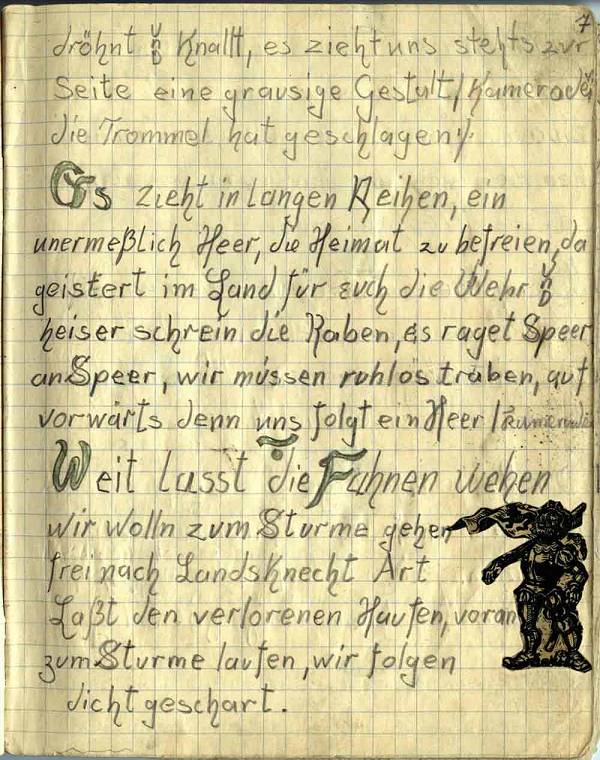 7
dröhnt und Knallt, es zieht uns stehts zur
Seite eine grausige Gestalt, /: Kameraden
die Trommel hat geschlagen :/.
Es zieht in langen Reihen, ein
unermeßlich Heer, die Heimat zu befreien, da
geistert im Land für euch die Wehr und
heiser schrein die Raben, es raget Speer
an Speer, wir müssen ruhlos traben, auf
vorwärts denn uns folgt ein Heer /:
Weit lasst die Fahnen wehen
wir wolln zum Sturme gehen
frei nach Landsknecht Art
Laßt den verlorenen Haufen, voran
zum Sturme laufen, wir folgen
dicht geschart.